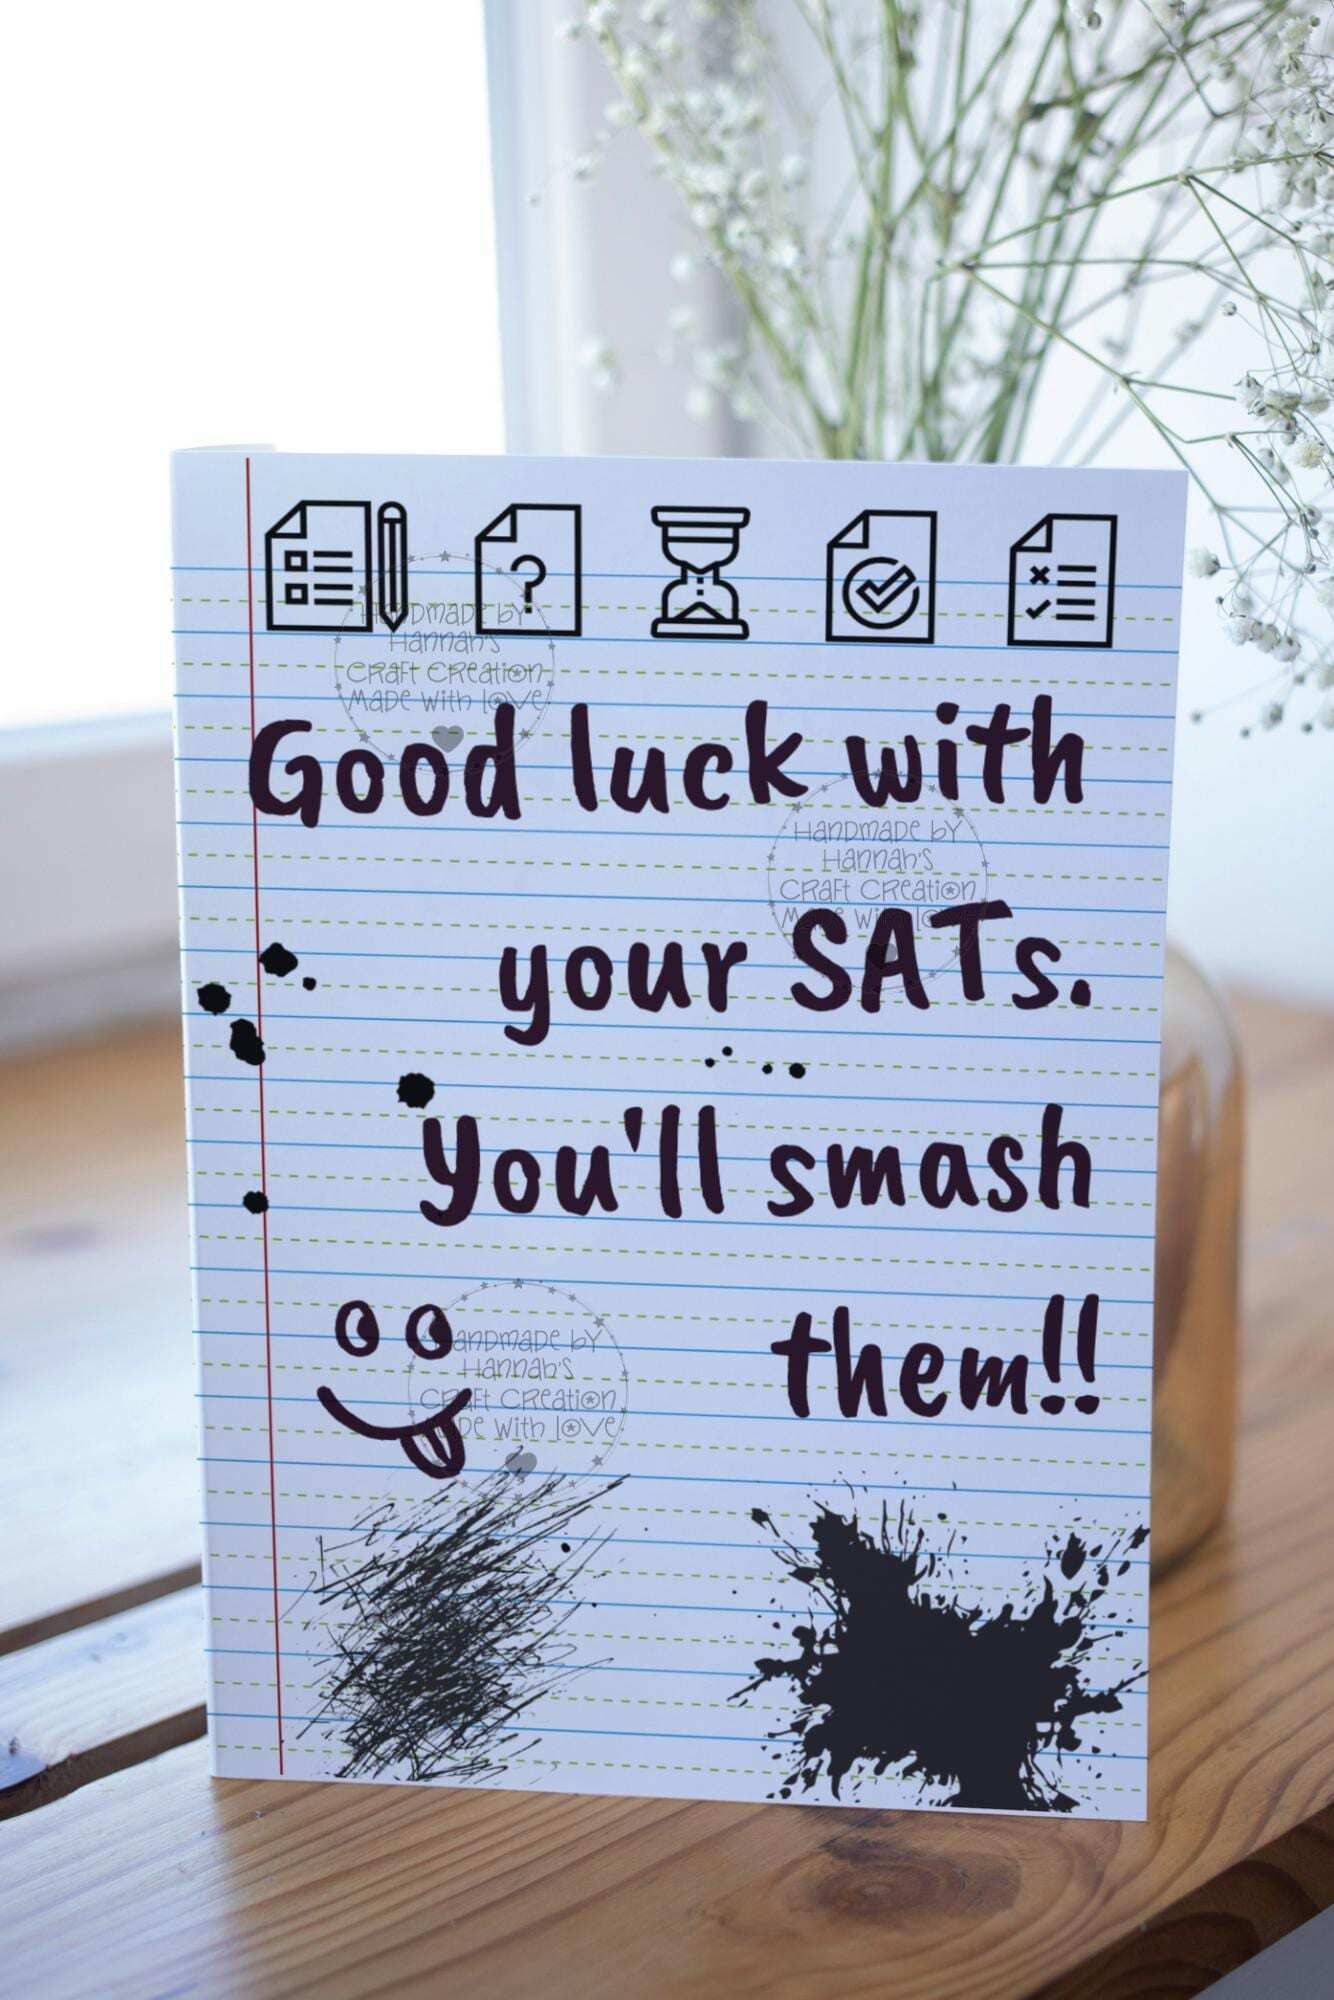 ?
Handmade by
Hannah's
Craft Creation
Made with love
Good luck with
Handmade by
Hannah's
Craft Creation
Made with love
your SATs.
You'll smash
them!!
Handmade by
Hannah's
Craft Creation
Made with love